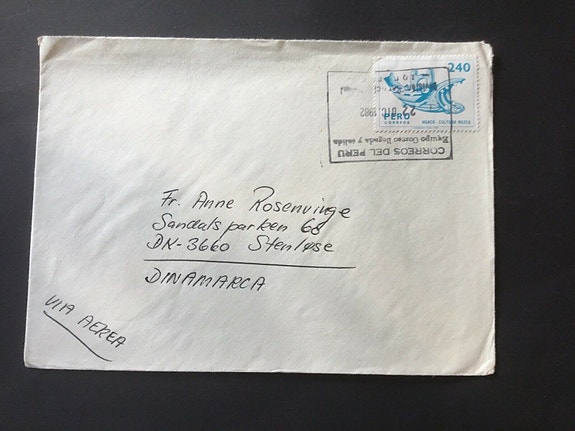 240
PERU
CORREOS
HUACO - CULTURA NAZCA
CORREOS DEL PERU
Equipo Correo llegada y salida
22 DIC. 1982
Fr. Anne Rosenvinge
Sandalsparken 68
DK-3660 Stenløse
DINAMARCA
VIA AEREA